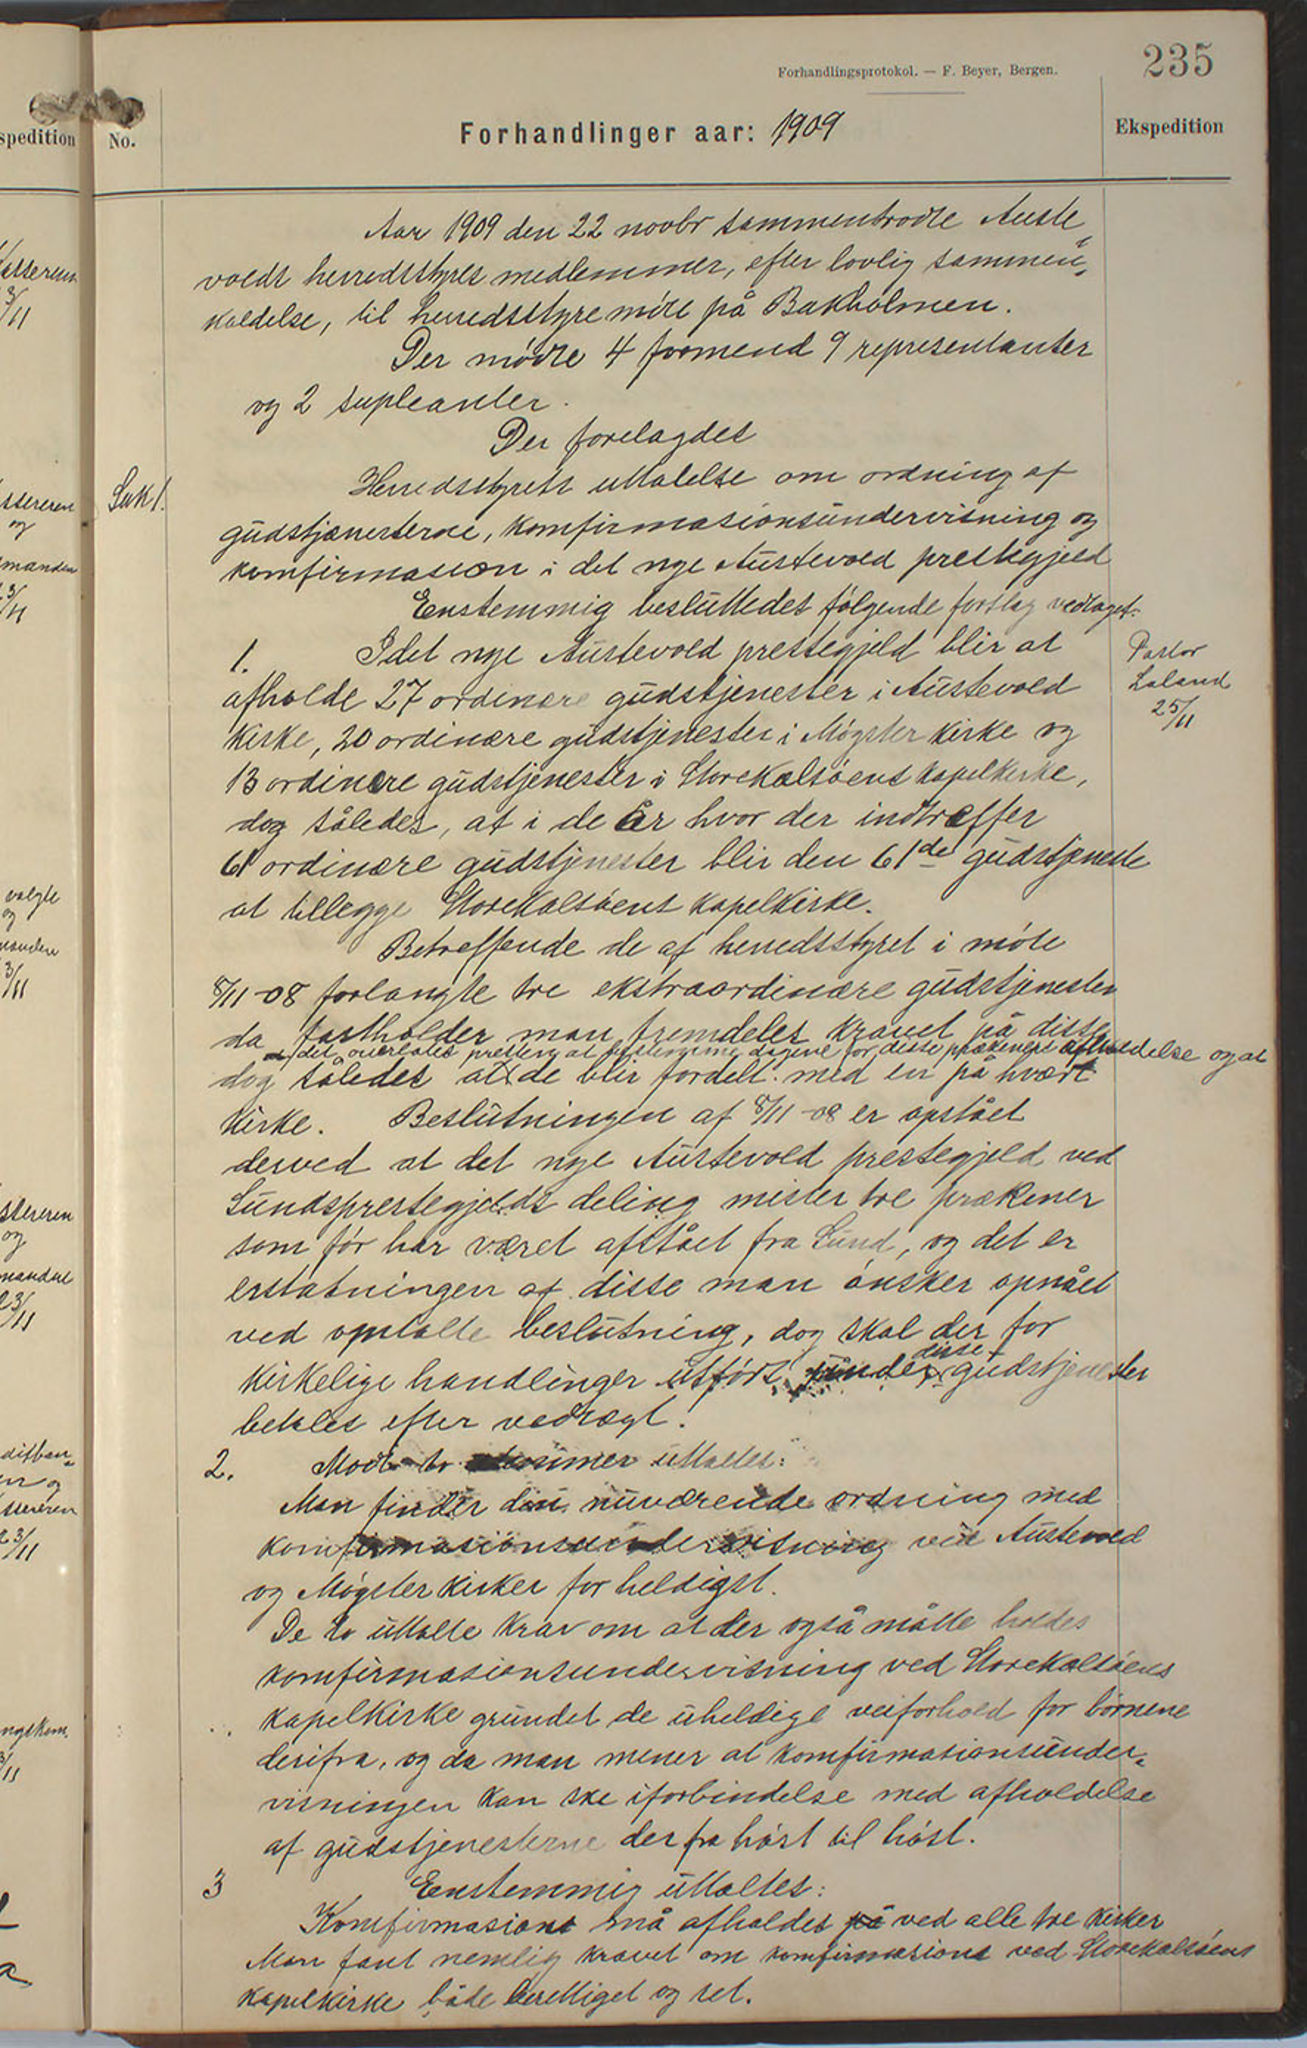 235
Forhandlingsprotokol. — F. Beyer, Bergen.
spedition
No.
Forhandlinger aar: 1909
Ekspedition
Aar 1909 den 22 novbr sammentrodte Auste„
volds herredsstyres medlemmer, efter lovlig sammen„
kaldelse, til herredsstyremöte på Bakholmen.
Der mödte 4 formend 9 representanter
og 2 supleanter.
Der forelagdes
Sak 1.
Herredsstyrets uttalelse om ordning af
gudstjænesterne, komfirmasionsundervisning og
komfirmasion i det nye Austevold prestegjeld
Enstemmig besluttedes følgende forslag vedtaget:
1. I det nye Austevold prestegjeld blir at
afholde 27 ordinære gudstjenester i Austevold
Kirke, 20 ordinære gudstjenester i Møgster kirke og
13 ordinære gudstjenester i Storekalsöens kapelkirke,
dog således, at i de år hvor der indtræffer
61 ordinære gudstjenester blir den 61de gudstjeneste
at tillegge Storekalsöens kapelkirke.
Pastor
Laland
25/11
Betreffende de af herredsstyret i möte
8/11-08 forlangte tre ekstraordinære gudstjenester
da fastholder man fremdeles kravet på disse
det overlates presten at bestemme dagene for disse prækeners afholdelse og at
dog således at de blir fordelt med en på hvært
Kirke. Beslutningen af 8/11-08 er opstået
derved at det nye Austevold prestegjeld ved
Sundsprestegjelds deling mister tre prækener
som før har været afstået fra Sund, og det er
erstatningen af disse man önsker opnået
ved omtalte beslutning, dog skal der for
kirkelige handlinger utført under disse gudstjenester
betales efter vedtægt.
2. Mod to stemmer uttaltes:
Man finder den nuværende ordning med
komfirmasionsundervisning ved Austevold
og Møgster kirker for heldigst.
De to uttalte krav om at der også måtte holdes
komfirmasionsundervisning ved Storekalsöens
kapelkirke grundet de uheldige veiforhold for börnene
derifra, og da man mener at komfirmasionsunder„
visningen kan ske iforbindelse med afholdelse
af gudstjenesterne der fra höst til höst.
3 Enstemmig uttaltes:
Komfirmasion må afholdes ved alle tre kirker
Man fant nemlig kravet om komfirmasion ved Storekalsöens
kapelkirke både berettiget og ret.